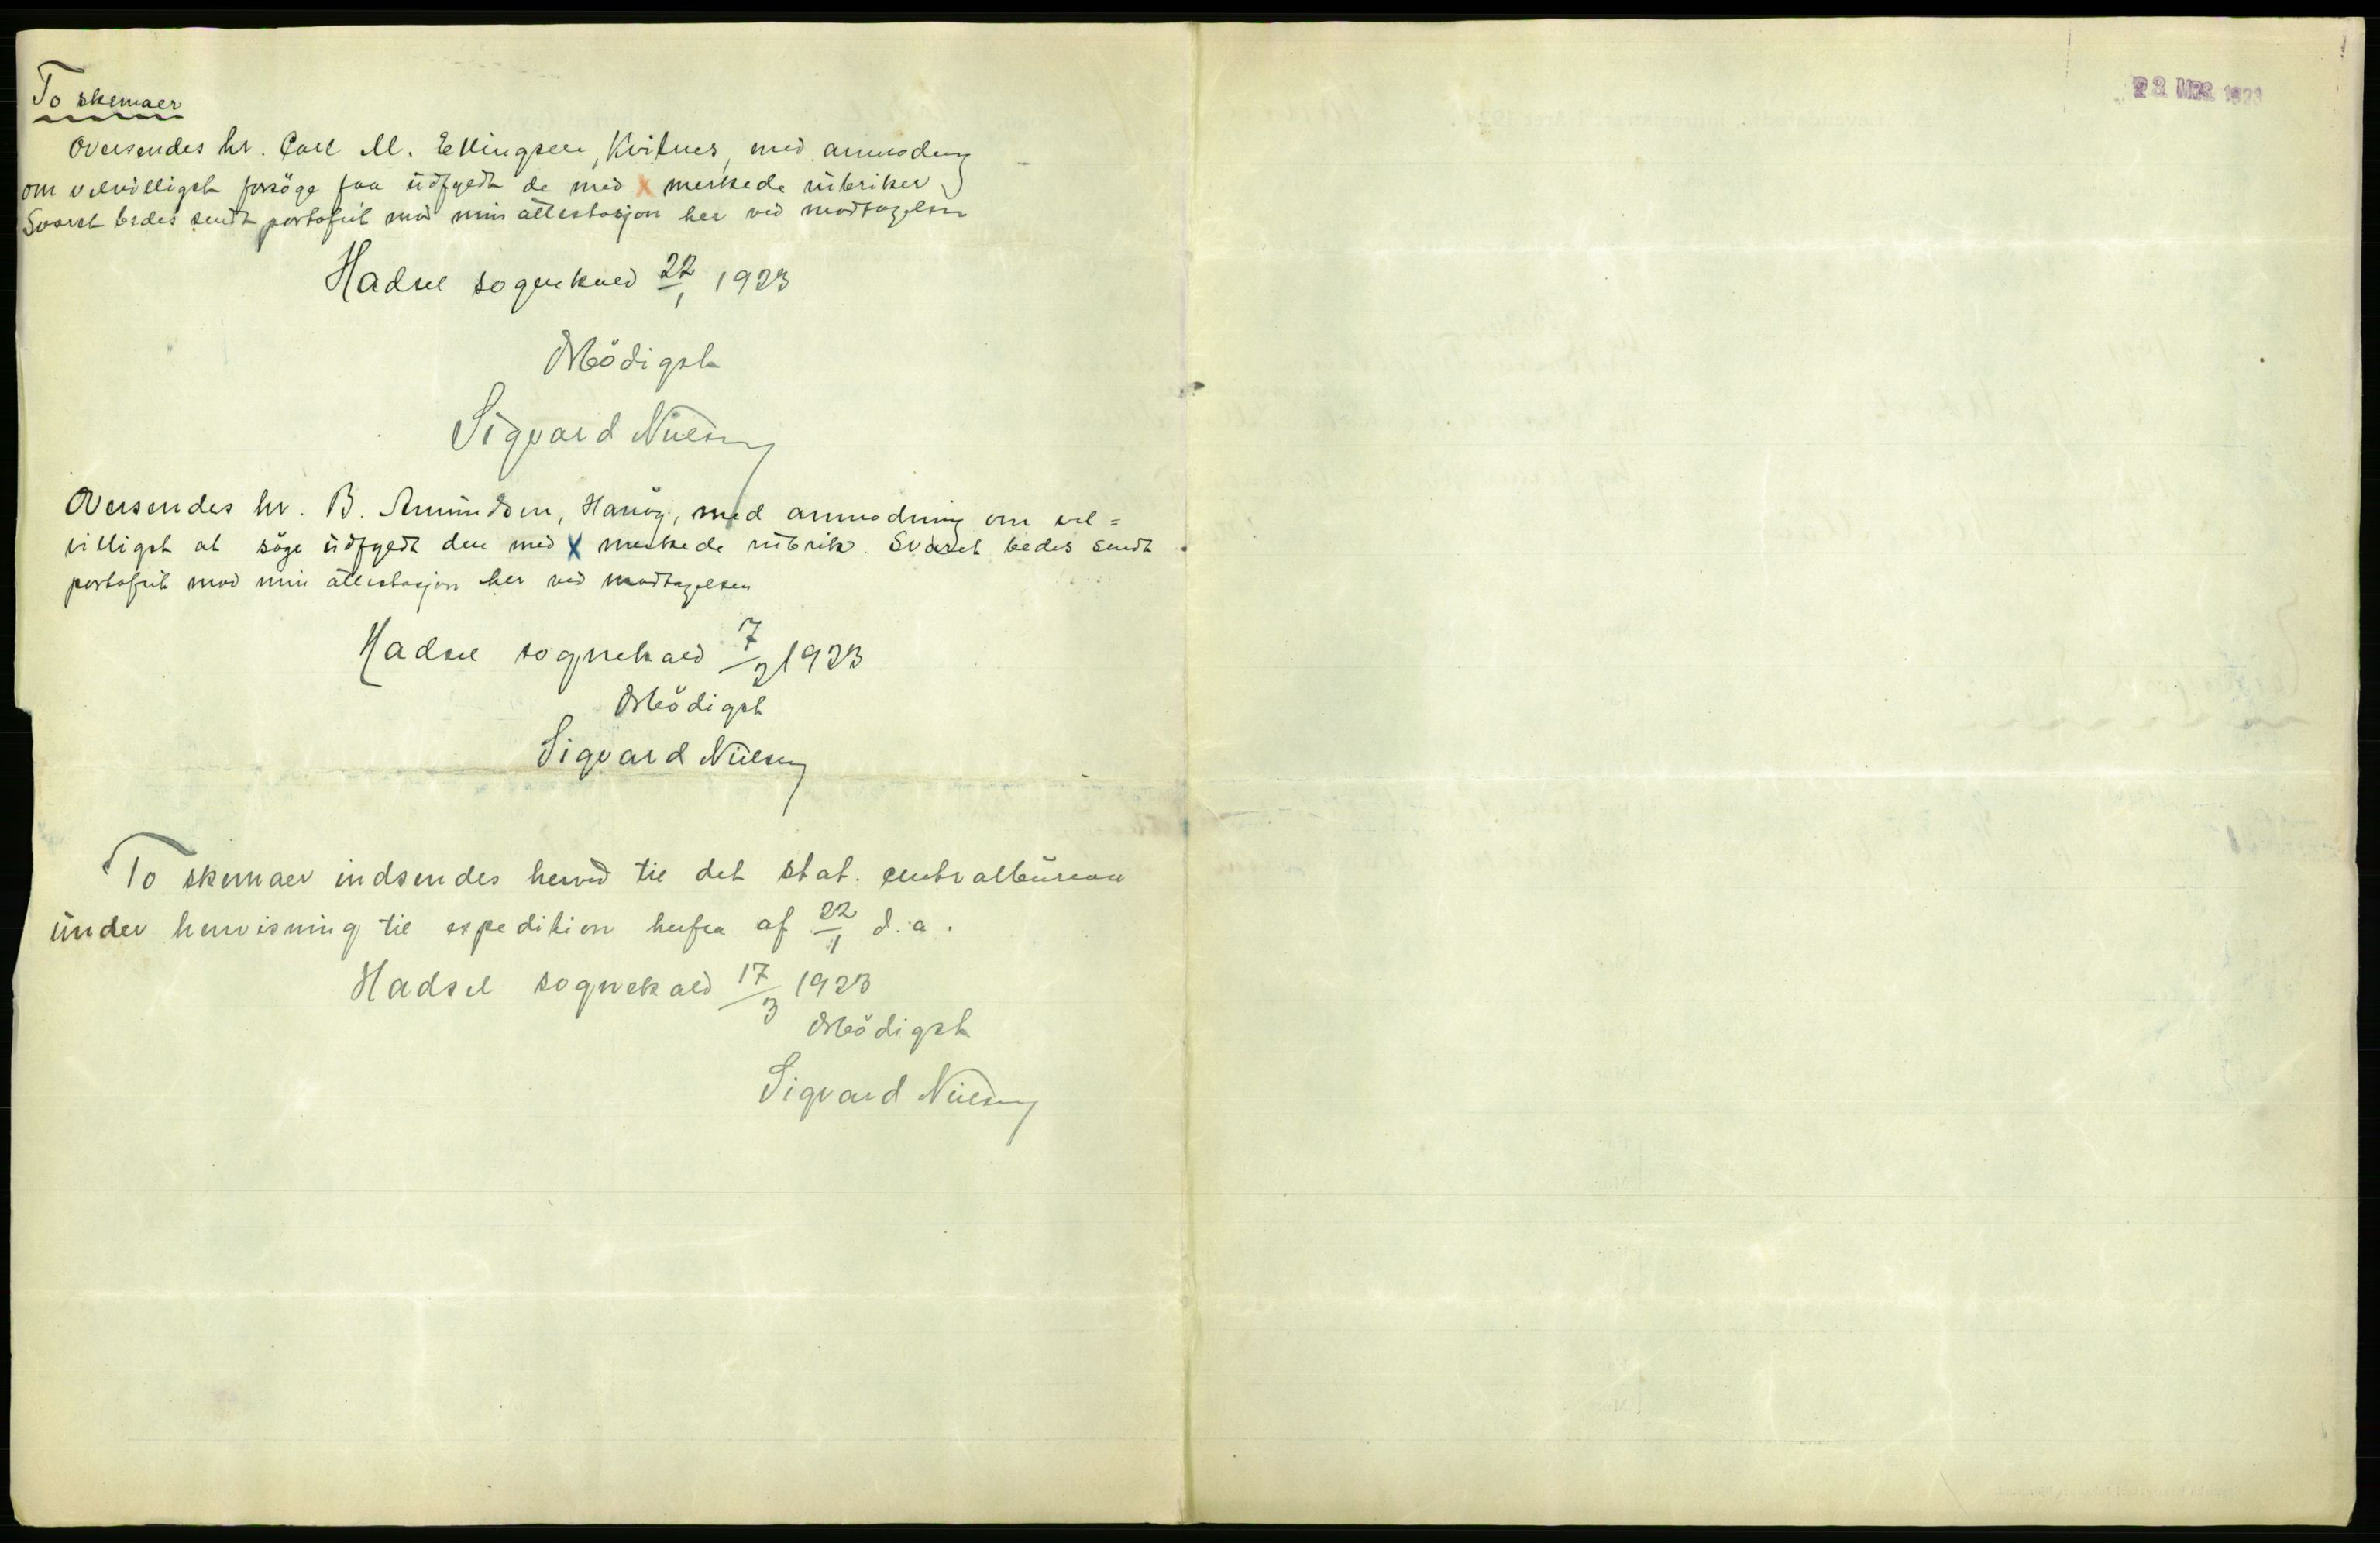 To skemaer
Oversendes hr. Carl M. Ellingsen, Kvitnes, med anmodning
om velvilligst forsöge faa udfyldt de med X merkede rubriker
Svaret bedes sendt portofrit mod min attestasjon her ved modtagelsen
Hadsel sognekald 22/1 1923
Ærbödigst
Sigvard Nielsen
Oversendes hr. B. Amundsen, Hanöy, med anmodning om vel=
villigst at söge udfyldt den med X merkede rubrik. Svaret bedes sendt
portofrit mod min attestasjon her ved modtagelsen
Hadsel sognekald 7/2 1923
Ærbödigst
Sigvard Nielsen
To skemaer indsendes herved til det stat. centralbureau
under henvisning til expedition herfra af 22/1 d.a.
Hadsel sognekald 17/3 1923
Ærbödigst
Sigvard Nielsen
MRS 1923